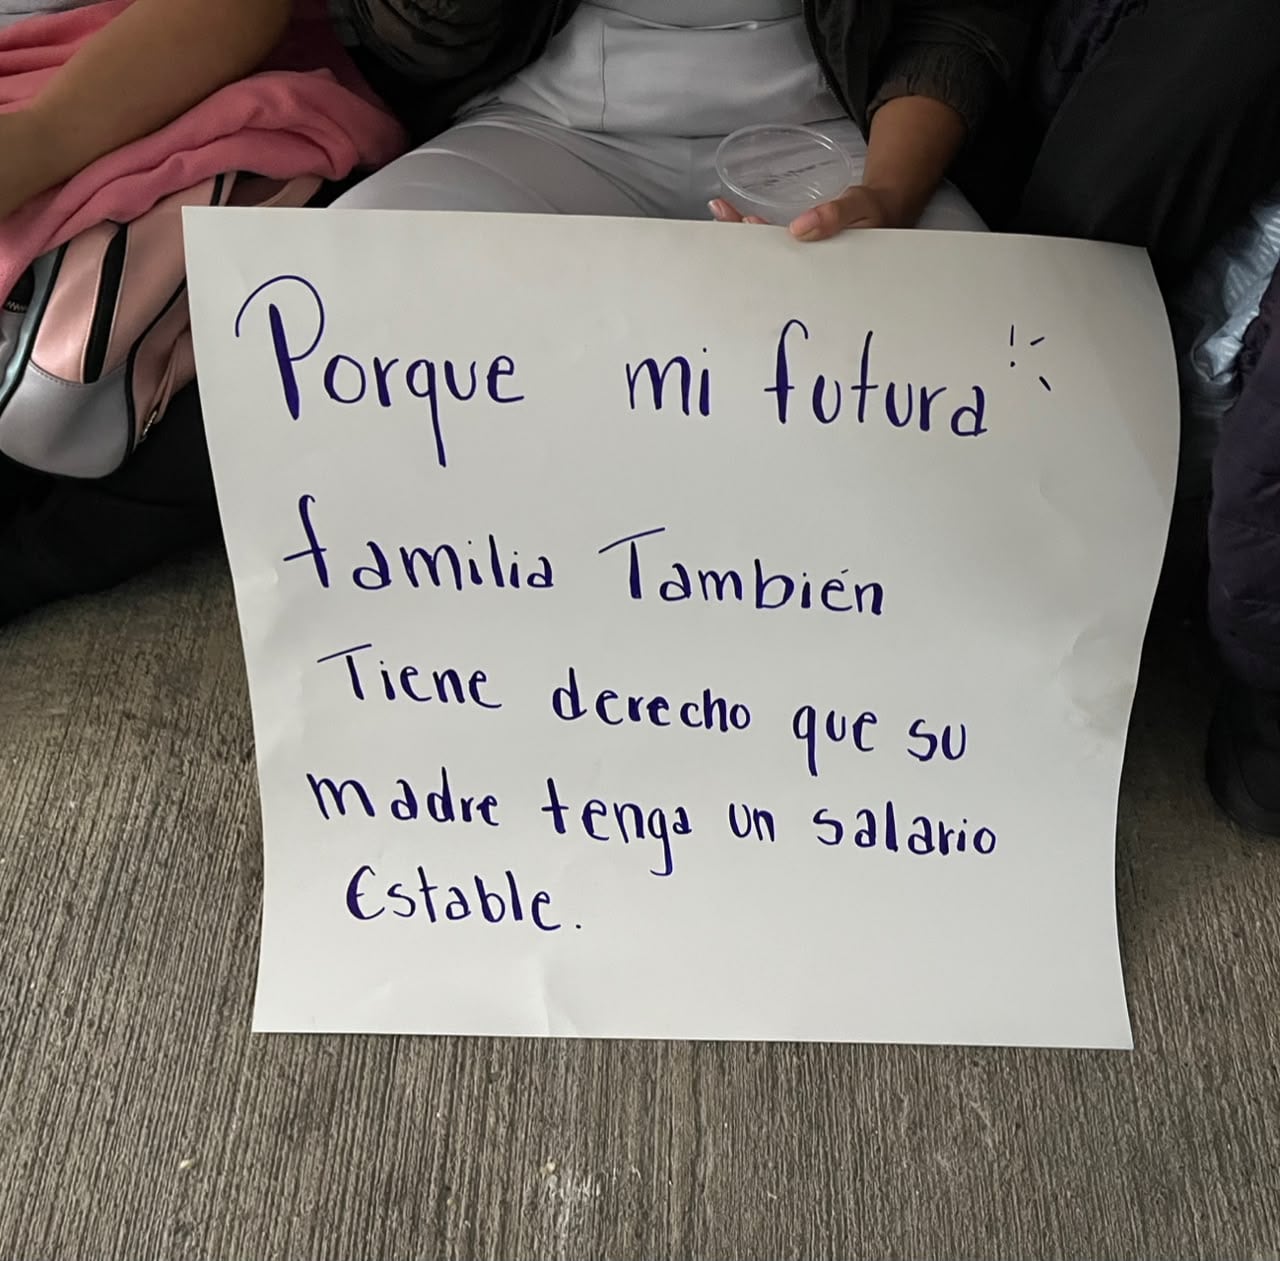 Porque mi futura
familia También
Tiene derecho que su
madre tenga un salario
Estable.